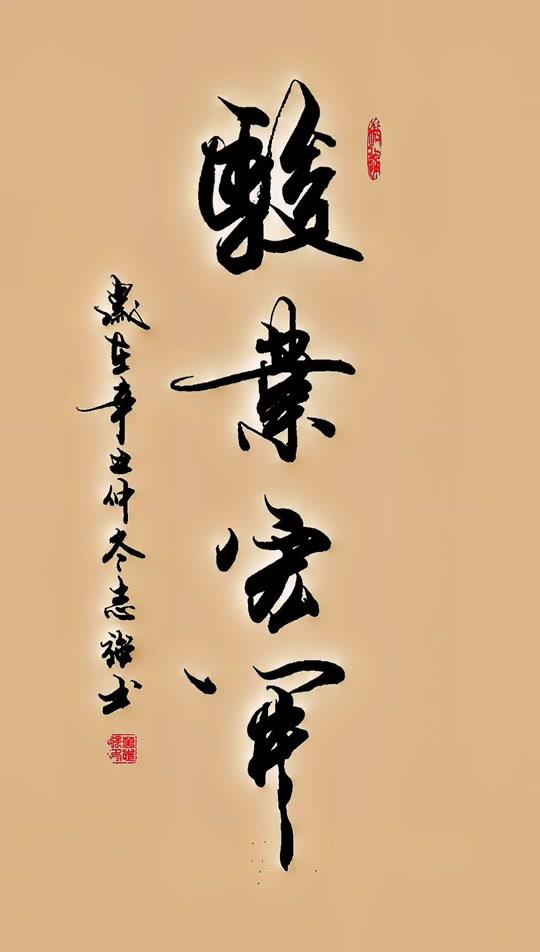 駿業宏開
歲在辛丑仲冬志书